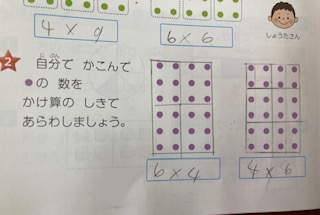 4 × 9
6 × 6
しょうたさん
2 自分で かこんで
●の 数を
かけ算の しきで
あらわしましょう。
6 × 4
4 × 6